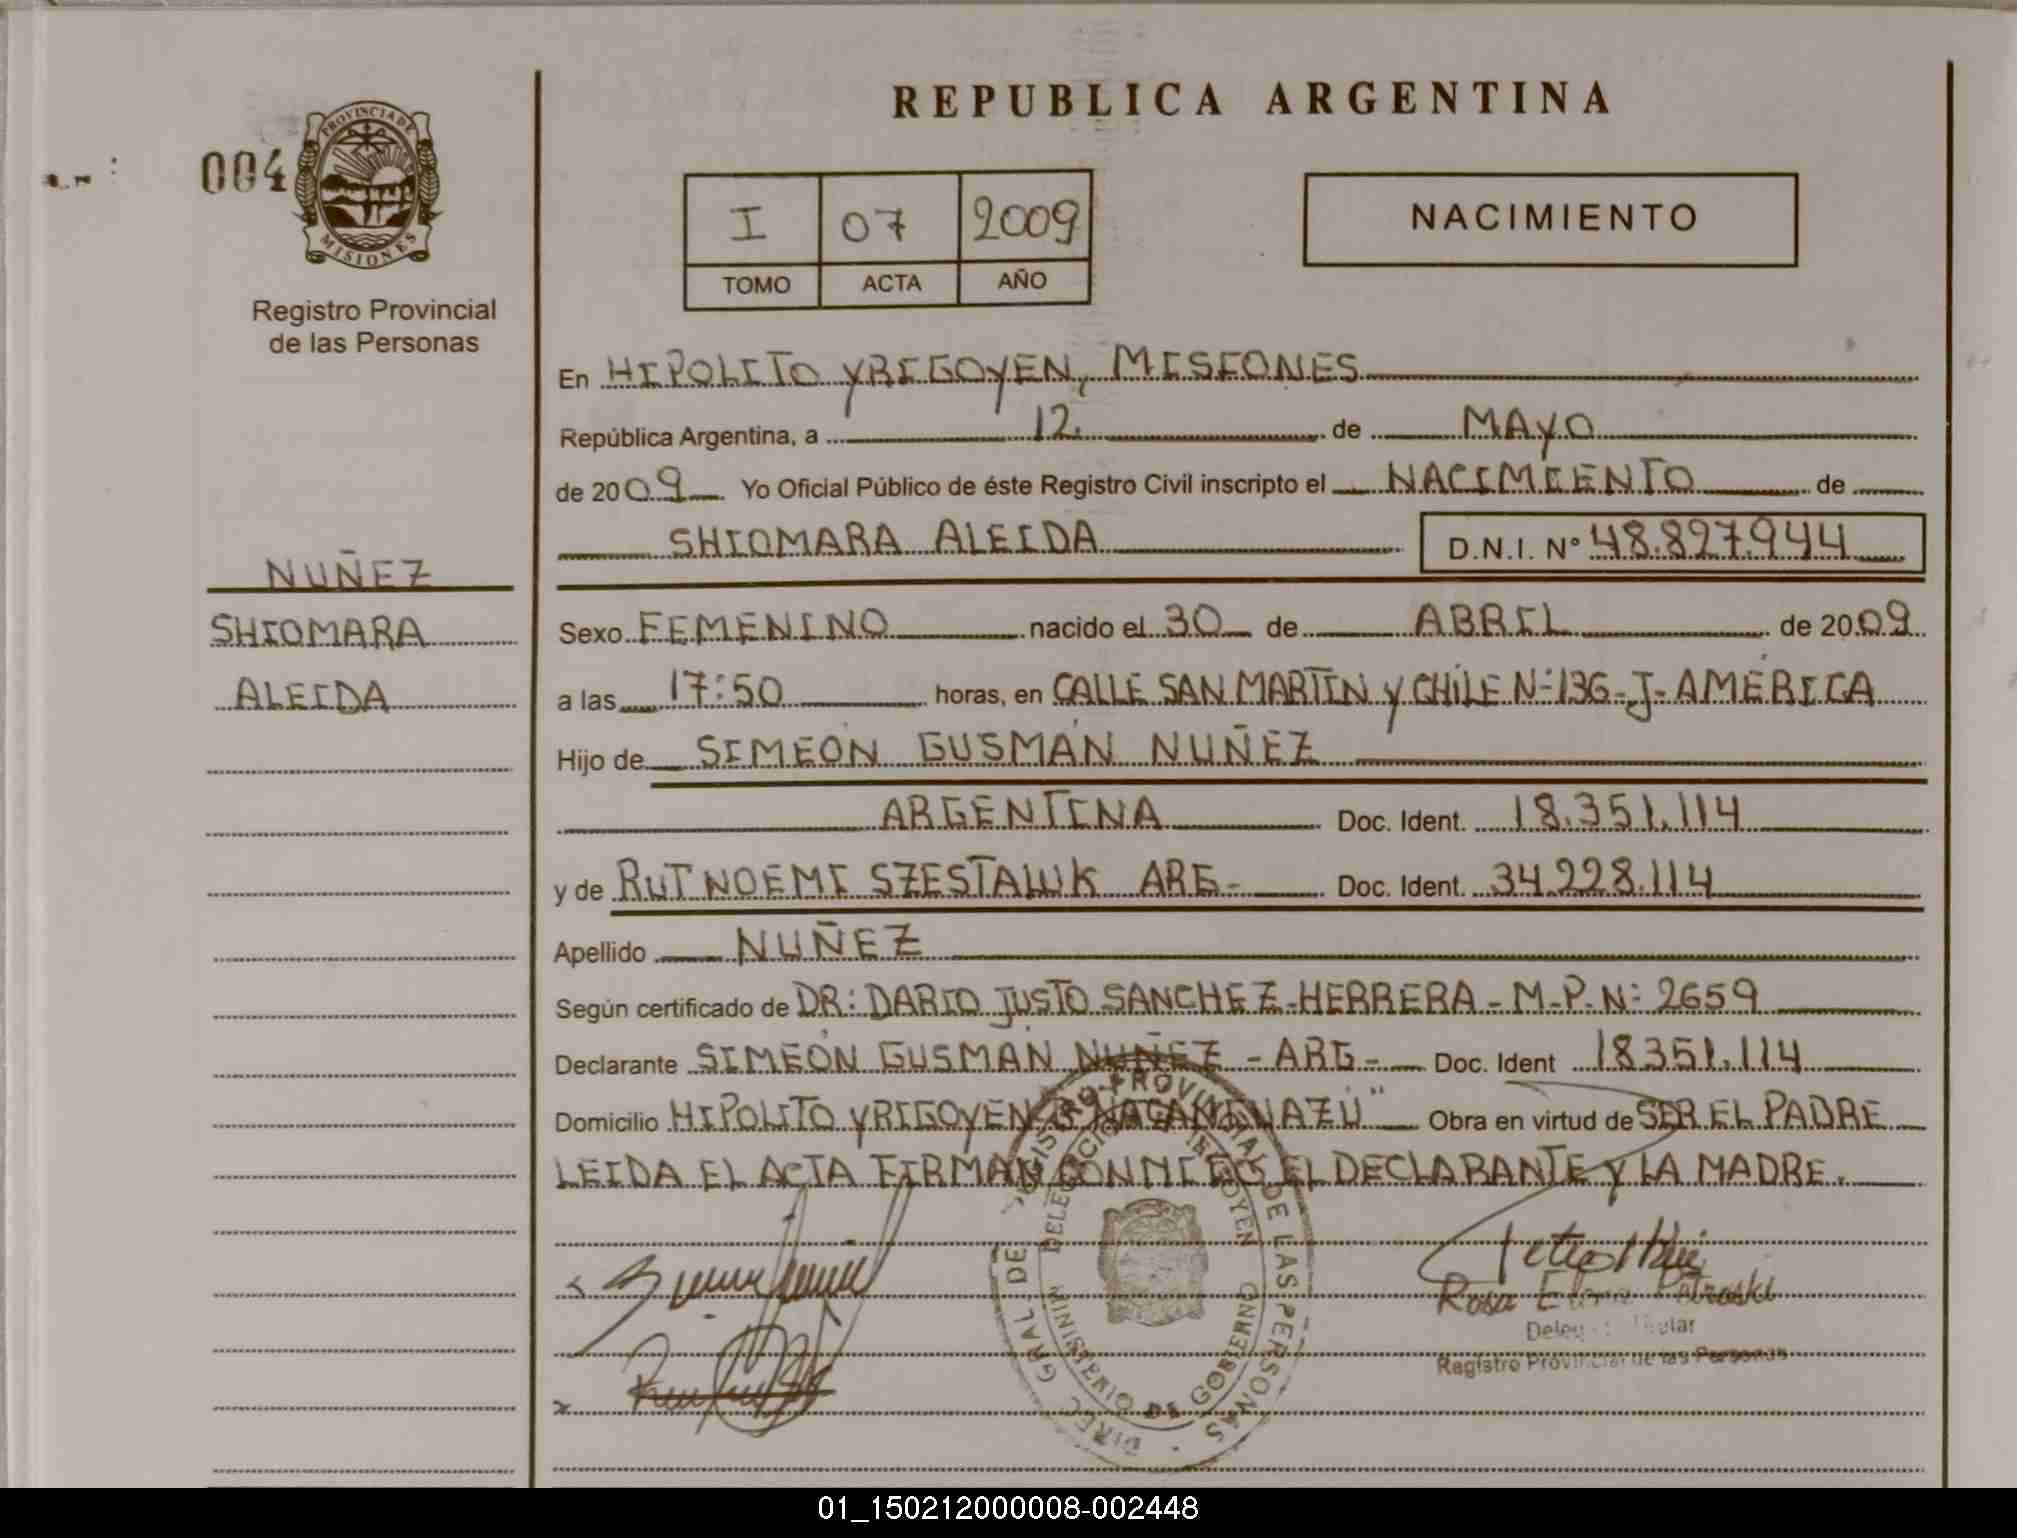 REPUBLICA ARGENTINA
004
PROVINCIA DE
MISIONES
Registro Provincial
de las Personas
I 07 2009
TOMO ACTA AÑO
NACIMIENTO
En HIPOLITO YRIGOYEN, MISIONES
República Argentina, a 12 de MAYO
de 2009 Yo Oficial Público de éste Registro Civil inscripto el NACIMIENTO de
SHIOMARA ALEIDA D.N.I. N° 48.827.944
NUÑEZ
SHIOMARA
ALEIDA
Sexo FEMENINO nacido el 30 de ABRIL de 2009
a las 17:50 horas, en CALLE SAN MARTIN Y CHILE N° 136 - J- AMÉRICA
Hijo de SIMEÓN GUSMÁN NUÑEZ
ARGENTINA Doc. Ident. 18.351.114
y de RUT NOEMI SZESTALUK ARG- Doc. Ident. 34.228.114
Apellido NUÑEZ
Según certificado de DR: DARIO JUSTO SANCHEZ-HERRERA - M-P-N: 2659
Declarante SIMEÓN GUSMÁN NUÑEZ - ARG - Doc. Ident 18351.114
Domicilio HIPOLITO YRIGOYEN Obra en virtud de SER EL PADRE
LEIDA EL ACTA FIRMAN CONMIGO EL DECLARANTE Y LA MADRE.
DIREC. GRAL DE REGISTRO PROVINCIAL DE LAS PERSONAS
MINISTERIO DE GOBIERNO
Rosa Elena Petroski
Registro Provincial de las Personas
01_150212000008-002448